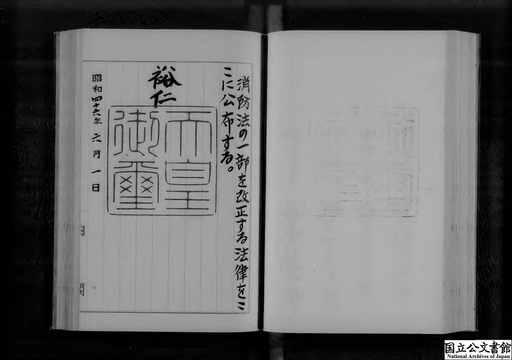 消防法の一部を改正する法律をこ
こに公布する。
裕仁
天皇
御璽
昭和四十六年六月一日
内閣
国立公文書館
National Archives of Japan